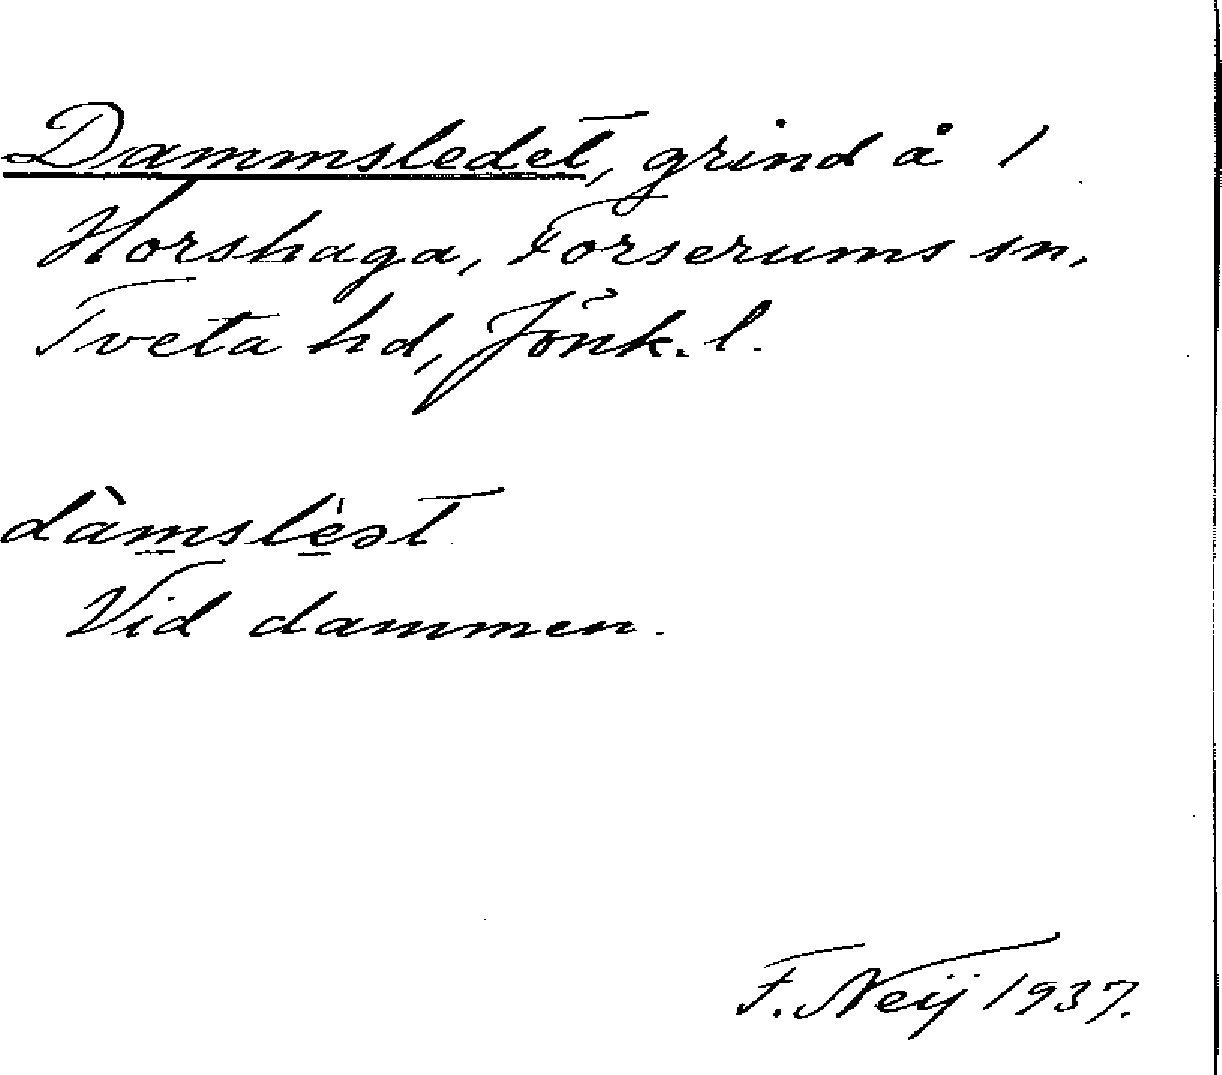 Dammsledet, grind å 1
Horshaga, Forserums sn,
Tveta hd, Jönk. l.
dàmslèət
Vid dammen.
F. Neij 1937.